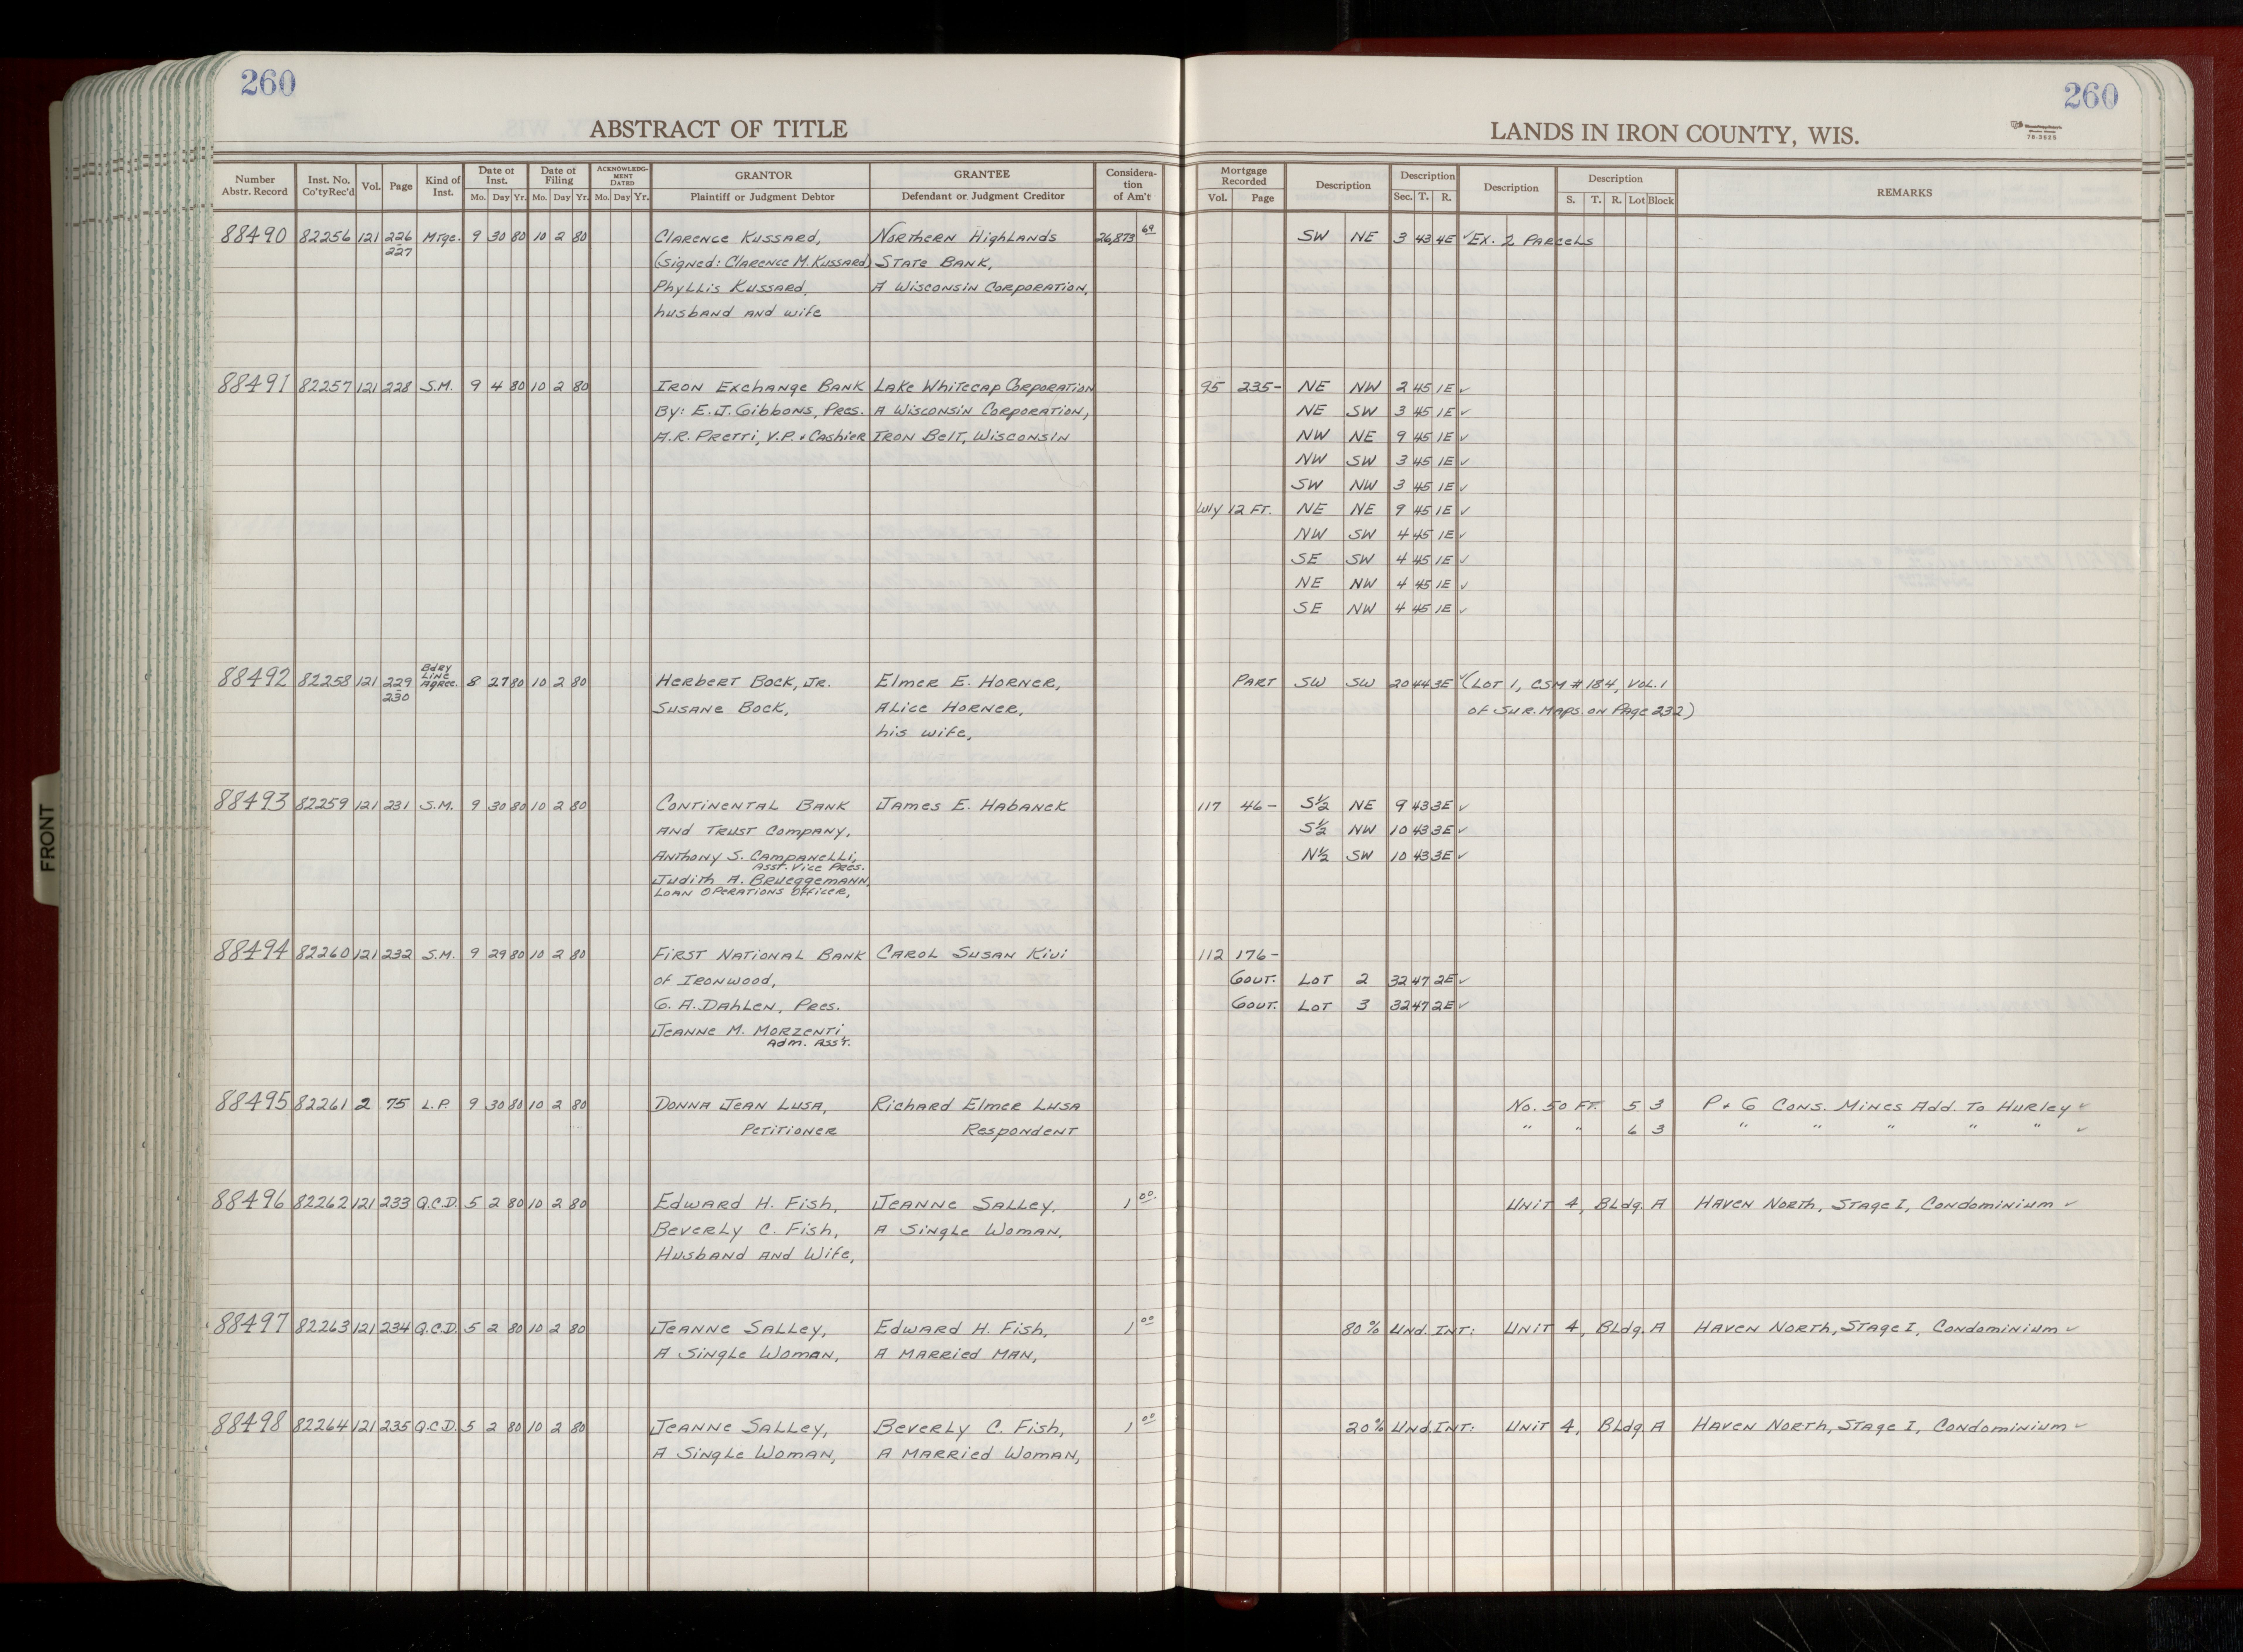 260
260
ABSTRACT OF TITLE
LANDS IN IRON COUNTY, WIS.
78-3625
Number Abstr. Record
Inst. No. Co'ty Rec'd
Vol.
Page
Kind of Inst.
Date of Inst.
Mo. Day Yr.
Date of Filing
Mo. Day Yr.
ACKNOWLEDG-MENT DATED
Mo. Day Yr.
GRANTOR
Plaintiff or Judgment Debtor
GRANTEE
Defendant or Judgment Creditor
Considera-tion of Am't
Mortgage Recorded
Vol. Page
Description
Description
Sec. T. R.
Description
Description
S. T. R. Lot Block
REMARKS
88490 82256 121 226 Mtge. 9 30 80 10 2 80 Clarence Kussard, Northern Highlands 26,873 69 SW NE 3 43 4E ✓ Ex. 2 Parcels
- 227 (Signed: Clarence M. Kussard) State Bank,
Phyllis Kussard, A Wisconsin Corporation,
husband and wife
88491 82257 121 228 S.M. 9 4 80 10 2 80 Iron Exchange Bank Lake Whitecap Corporation 95 235- NE NW 2 45 1E ✓
By: E.J. Gibbons, Pres. A Wisconsin Corporation, NE SW 3 45 1E ✓
A.R. Pretti, V.P. + Cashier Iron Belt, Wisconsin NW NE 9 45 1E ✓
NW SW 3 45 1E ✓
SW NW 3 45 1E ✓
Wly 12 FT. NE NE 9 45 1E ✓
NW SW 4 45 1E ✓
SE SW 4 45 1E ✓
NE NW 4 45 1E ✓
SE NW 4 45 1E ✓
88492 82258 121 229 Bdry Line Agree. 8 27 80 10 2 80 Herbert Bock, Jr. Elmer E. Horner, Part SW SW 20 44 3E ✓ (Lot 1, CSM # 184, Vol. 1
- 230 Susane Bock, Alice Horner, of Sur. Maps on Page 232)
his wife,
88493 82259 121 231 S.M. 9 30 80 10 2 80 Continental Bank James E. Habanek 117 46- S½ NE 9 43 3E ✓
and Trust Company, S½ NW 10 43 3E ✓
Anthony S. Campanelli, N½ SW 10 43 3E ✓
Asst. Vice Pres.
Judith A. Brueggemann,
Loan Operations Officer,
88494 82260 121 232 S.M. 9 29 80 10 2 80 First National Bank Carol Susan Kivi 112 176-
of Ironwood, Govt. Lot 2 32 47 2E ✓
G. A. Dahlen, Pres. Govt. Lot 3 32 47 2E ✓
Jeanne M. Morzenti
Adm. Ass't.
88495 82261 2 75 L.P. 9 30 80 10 2 80 Donna Jean Lusa, Richard Elmer Lusa No. 50 FT. 5 3 P + G Cons. Mines Add. To Hurley ✓
Petitioner Respondent " " 6 3 " " " " " ✓
88496 82262 121 233 Q.C.D. 5 2 80 10 2 80 Edward H. Fish, Jeanne Salley, 1 00 Unit 4, Bldg. A Haven North, Stage I, Condominium ✓
Beverly C. Fish, A Single Woman,
Husband and Wife,
88497 82263 121 234 Q.C.D. 5 2 80 10 2 80 Jeanne Salley, Edward H. Fish, 1 00 80% Und. Int: Unit 4, Bldg. A Haven North, Stage I, Condominium ✓
A Single Woman, A Married Man,
88498 82264 121 235 Q.C.D. 5 2 80 10 2 80 Jeanne Salley, Beverly C. Fish, 1 00 20% Und. Int: Unit 4, Bldg. A Haven North, Stage I, Condominium ✓
A Single Woman, A Married Woman,
FRONT